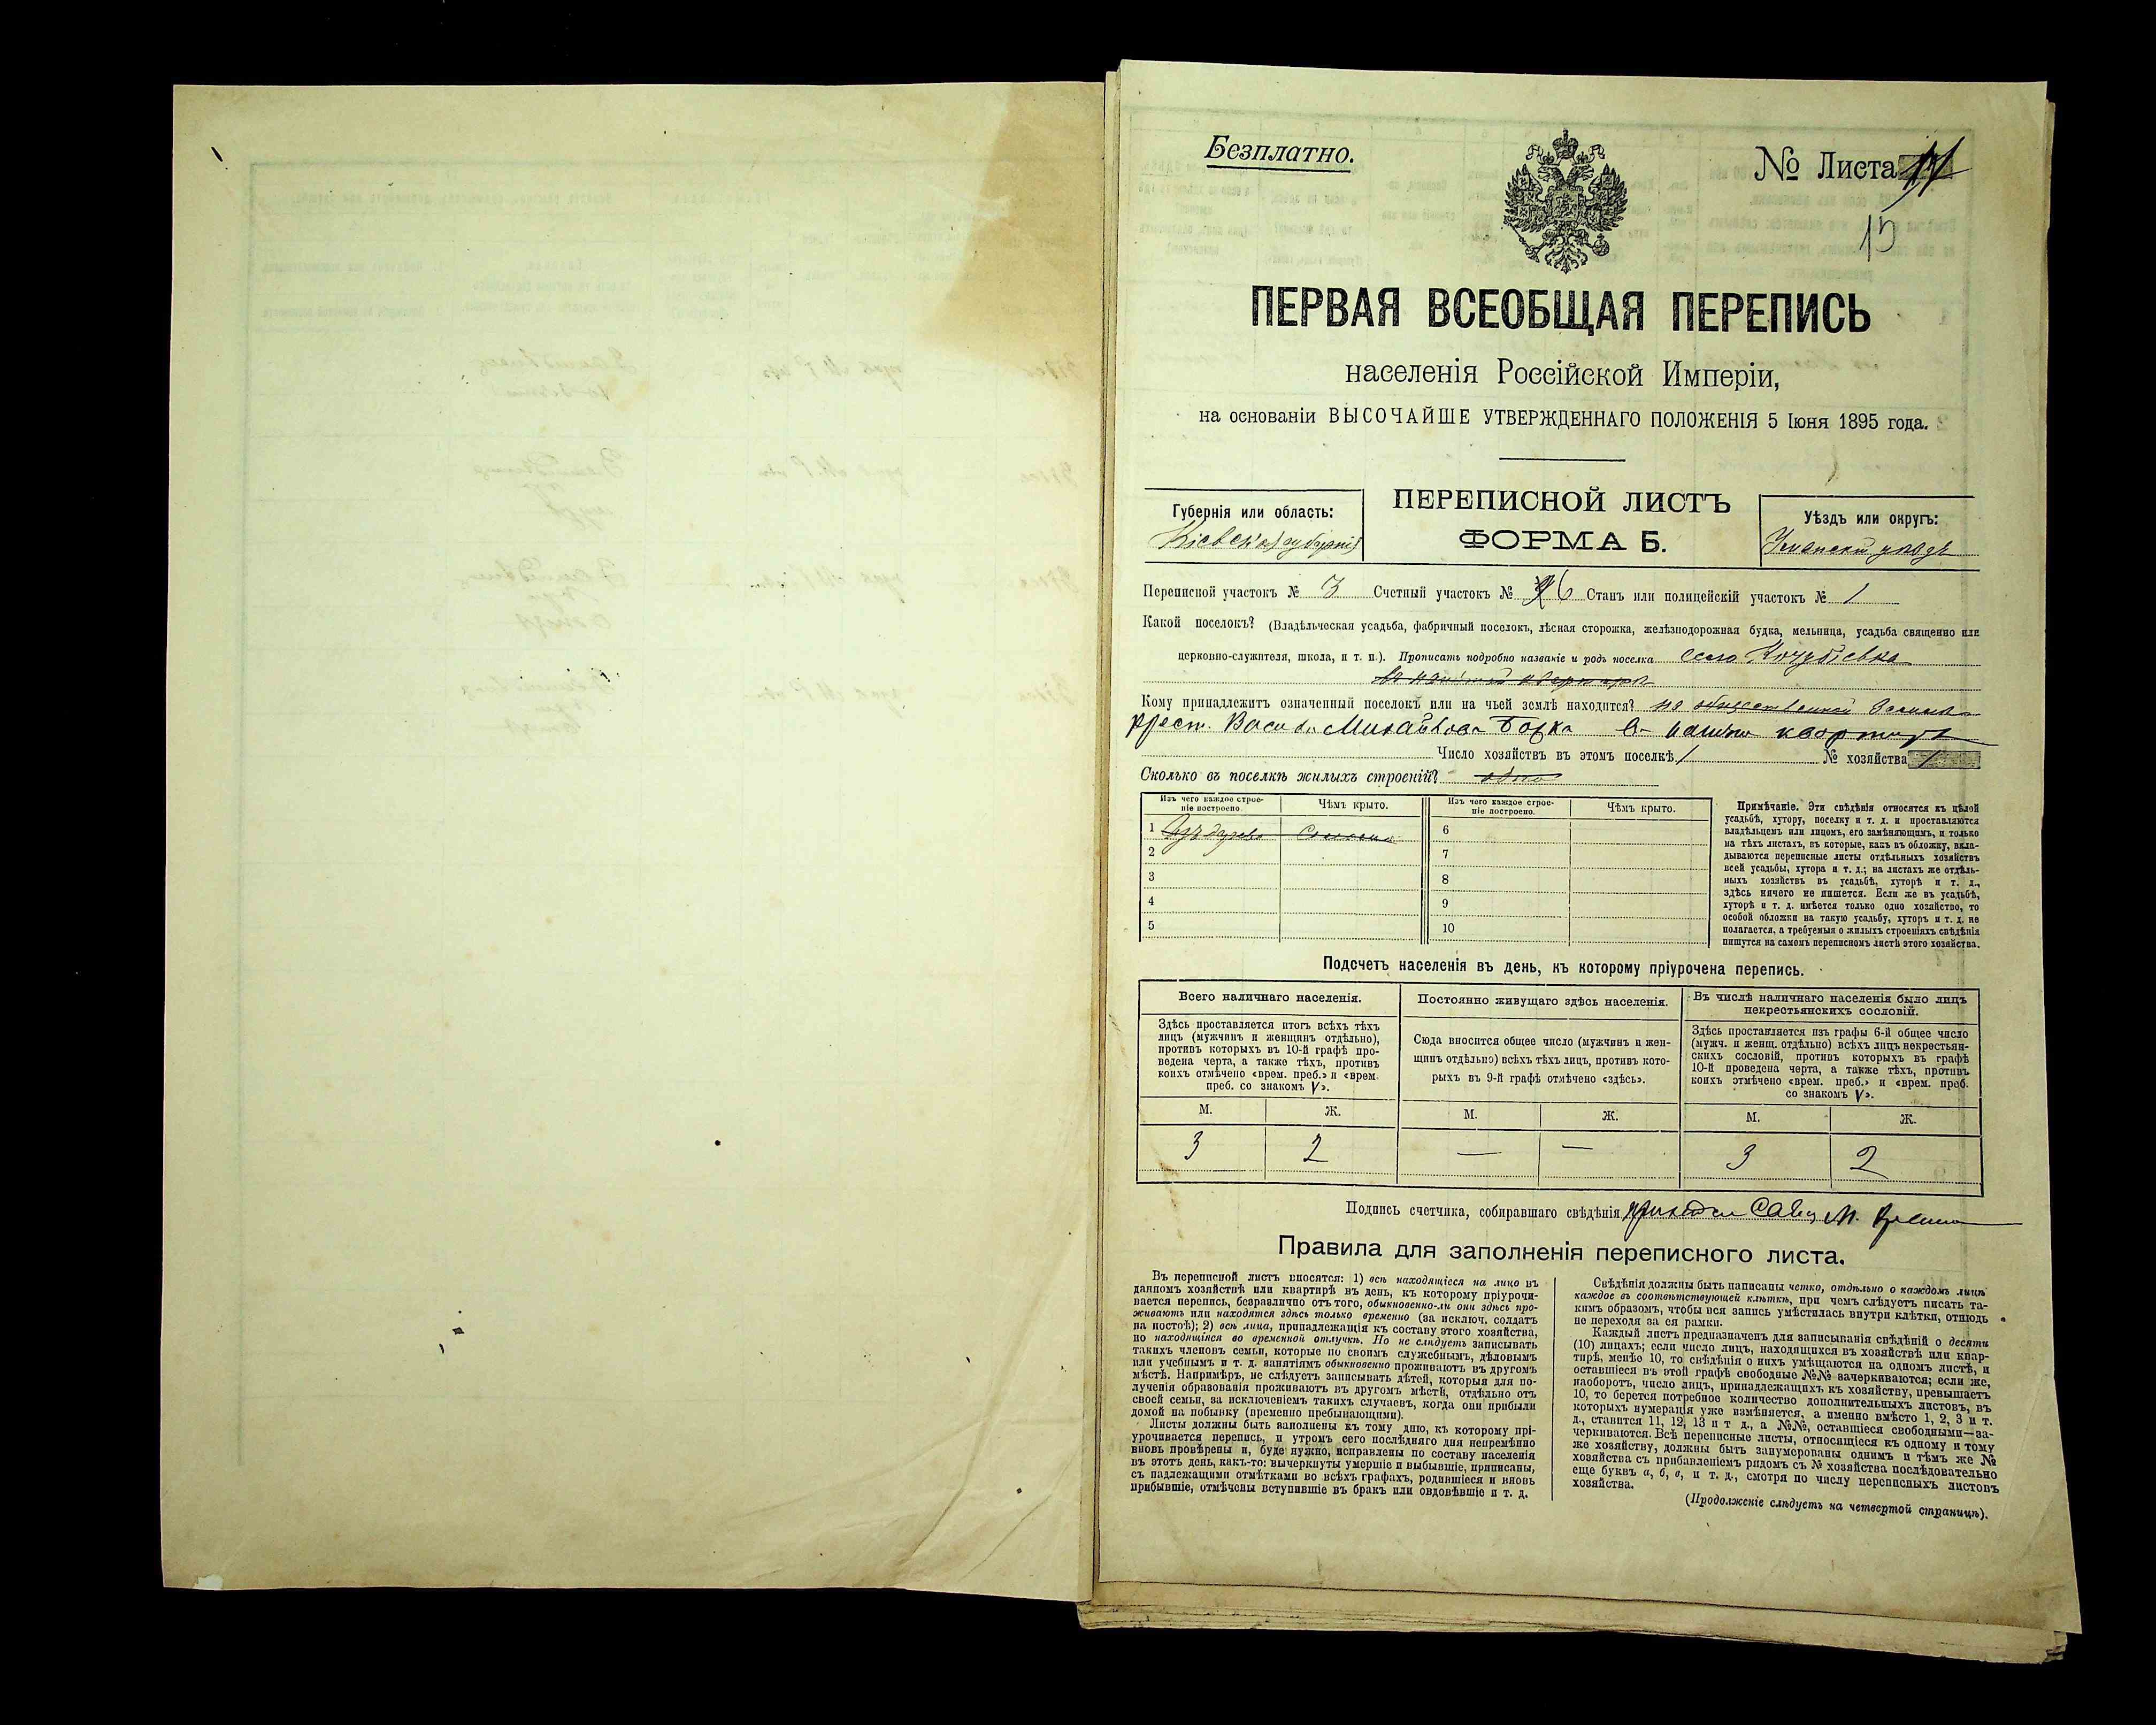 Безплатно.
№ Листа
15
ПЕРВАЯ ВСЕОБЩАЯ ПЕРЕПИСЬ
населенія Россійской Имперіи,
на основаніи ВЫСОЧАЙШЕ УТВЕРЖДЕННАГО ПОЛОЖЕНІЯ 5 Іюня 1895 года.
Губернія или область:
Кіевской губерніи
ПЕРЕПИСНОЙ ЛИСТЪ
ФОРМА Б.
Уѣздъ или округъ:
Уманскій уѣздъ
Переписной участокъ № 3 Счетный участокъ № 6 Станъ или полицейскій участокъ № 1
Какой поселокъ? (Владѣльческая усадьба, фабричный поселокъ, лѣсная сторожка, желѣзнодорожная будка, мельница, усадьба священно или
церковно-служителя, школа, и т. п.). Прописать подробно названіе и родъ поселка село Кочубіевка
Кому принадлежитъ означенный поселокъ или на чьей землѣ находится? на общественной земли
крест. Михайлова в квартирѣ
Число хозяйствъ въ этомъ поселкѣ 1 № хозяйства 1
Сколько въ поселкѣ жилыхъ строеній? одно
Изъ чего каждое строе-
ніе построено.
Чѣмъ крыто.
Изъ чего каждое строе-
ніе построено.
Чѣмъ крыто.
1 соломой
2
3
4
5
6
7
8
9
10
Примѣчаніе. Эти свѣдѣнія относятся къ цѣлой
усадьбѣ, хутору, поселку и т. д. и проставляются
владѣльцемъ или лицомъ, его замѣняющимъ, и только
на тѣхъ листахъ, въ которые, какъ въ обложку, вкла-
дываются переписные листы отдѣльныхъ хозяйствъ
всей усадьбы, хутора и т. д.; на листахъ же отдѣль-
ныхъ хозяйствъ въ усадьбѣ, хуторѣ и т. д.,
здѣсь ничего не пишется. Если же въ усадьбѣ,
хуторѣ и т. д. имѣется только одно хозяйство, то
особой обложки на такую усадьбу, хуторъ и т. д. не
полагается, а требуемыя о жилыхъ строеніяхъ свѣдѣнія
пишутся на самомъ переписномъ листѣ этого хозяйства.
Подсчетъ населенія въ день, къ которому пріурочена перепись.
Всего наличнаго населенія.
Здѣсь проставляется итогъ всѣхъ тѣхъ
лицъ (мужчинъ и женщинъ отдѣльно),
противъ которыхъ въ 10-й графѣ про-
ведена черта, а также тѣхъ, противъ
коихъ отмѣчено «врем. преб.» и «врем.
преб. со знакомъ V».
М. Ж.
3 2
Постоянно живущаго здѣсь населенія.
Сюда вносится общее число (мужчинъ и жен-
щинъ отдѣльно) всѣхъ тѣхъ лицъ, противъ кото-
рыхъ въ 9-й графѣ отмѣчено «здѣсь».
М. Ж.
— —
Въ числѣ наличнаго населенія было лицъ
некрестьянскихъ сословій.
Здѣсь проставляется изъ графы 6-й общее число
(мужч. и женщ. отдѣльно) всѣхъ лицъ некрестьян-
скихъ сословій, противъ которыхъ въ графѣ
10-й проведена черта, а также тѣхъ, противъ
коихъ отмѣчено «врем. преб.» и «врем. преб.
со знакомъ V».
М. Ж.
3 2
Подпись счетчика, собиравшаго свѣдѣнія
Правила для заполненія переписного листа.
Въ переписной листъ вносятся: 1) всѣ находящіеся на лицо въ
данномъ хозяйствѣ или квартирѣ въ день, къ которому пріурочи-
вается перепись, безразлично отъ того, обыкновенно-ли они здѣсь про-
живаютъ или находятся здѣсь только временно (за исключ. солдатъ
на постоѣ); 2) всѣ лица, принадлежащія къ составу этого хозяйства,
но находящіяся во временной отлучкѣ. Но не слѣдуетъ записывать
такихъ членовъ семьи, которые по своимъ служебнымъ, дѣловымъ
или учебнымъ и т. д. занятіямъ обыкновенно проживаютъ въ другомъ
мѣстѣ. Напримѣръ, не слѣдуетъ записывать дѣтей, которыя для по-
лученія образованія проживаютъ въ другомъ мѣстѣ, отдѣльно отъ
своей семьи, за исключеніемъ такихъ случаевъ, когда они прибыли
домой на побывку (временно пребывающими).
Листы должны быть заполнены къ тому дню, къ которому прі-
урочивается перепись, и утромъ сего послѣдняго дня непремѣнно
вновь провѣрены и, буде нужно, исправлены по составу населенія
въ этотъ день, какъ-то: вычеркнуты умершіе и выбывшіе, приписаны,
съ надлежащими отмѣтками во всѣхъ графахъ, родившіеся и вновь
прибывшіе, отмѣчены вступившіе въ бракъ или овдовѣвшіе и т. д.
Свѣдѣнія должны быть написаны четко, отдѣльно о каждомъ лицѣ
каждое въ соотвѣтствующей клѣткѣ, при чемъ слѣдуетъ писать та-
кимъ образомъ, чтобы вся запись умѣстилась внутри клѣтки, отнюдь
не переходя за ея рамки.
Каждый листъ предназначенъ для записыванія свѣдѣній о десяти
(10) лицахъ; если число лицъ, находящихся въ хозяйствѣ или квар-
тирѣ, менѣе 10, то свѣдѣнія о нихъ умѣщаются на одномъ листѣ, и
оставшіеся въ этой графѣ свободные №№ зачеркиваются; если же,
наоборотъ, число лицъ, принадлежащихъ къ хозяйству, превышаетъ
10, то берется потребное количество дополнительныхъ листовъ, въ
которыхъ нумерація уже измѣняется, а именно вмѣсто 1, 2, 3 и т.
д., ставится 11, 12, 13 и т д., а №№, оставшіеся свободными—за-
черкиваются. Всѣ переписные листы, относящіеся къ одному и тому
же хозяйству, должны быть занумерованы однимъ и тѣмъ же №
хозяйства съ прибавленіемъ рядомъ съ № хозяйства послѣдовательно
еще буквъ а, б, в, и т. д., смотря по числу переписныхъ листовъ
хозяйства.
(Продолженіе слѣдуетъ на четвертой страницѣ).